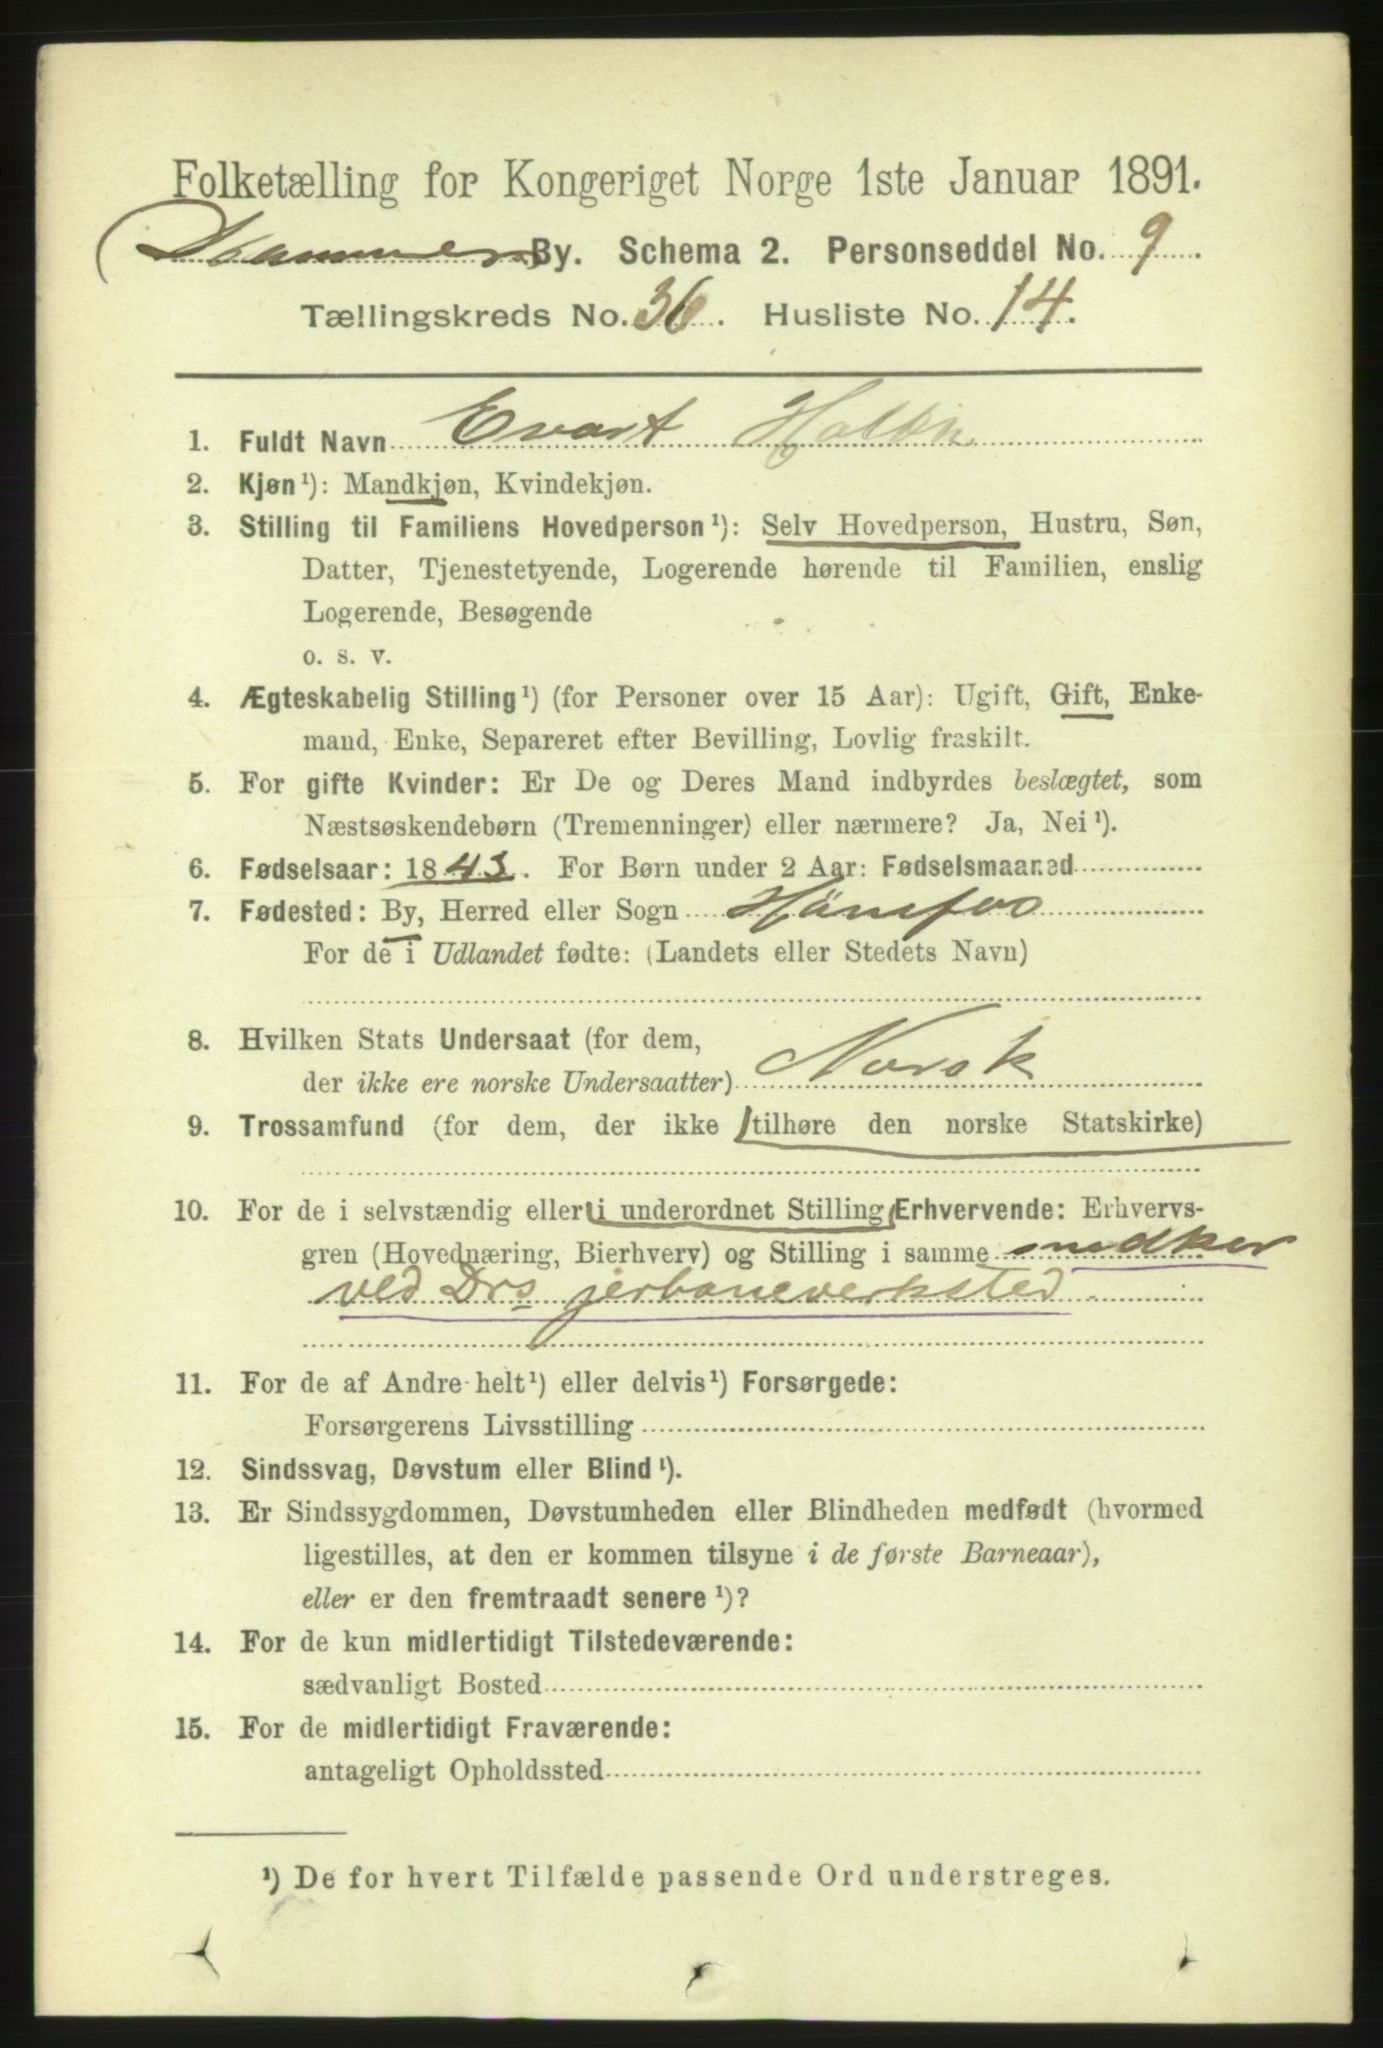 Folketælling for Kongeriget Norge 1ste Januar 1891.
Drammen By. Schema 2. Personseddel No. 9
Tællingskreds No. 36. Husliste No. 14.
1. Fuldt Navn Evart
2. Kjøn¹): Mandkjøn, Kvindekjøn.
3. Stilling til Familiens Hovedperson¹): Selv Hovedperson, Hustru, Søn,
Datter, Tjenestetyende, Logerende hørende til Familien, enslig
Logerende, Besøgende
o. s. v.
4. Ægteskabelig Stilling¹) (for Personer over 15 Aar): Ugift, Gift, Enke-
mand, Enke, Separeret efter Bevilling, Lovlig fraskilt.
5. For gifte Kvinder: Er De og Deres Mand indbyrdes beslægtet, som
Næstsøskendebørn (Tremenninger) eller nærmere? Ja, Nei¹).
6. Fødselsaar: 1843. For Børn under 2 Aar: Fødselsmaaned
7. Fødested: By, Herred eller Sogn Hönefos
For de i Udlandet fødte: (Landets eller Stedets Navn)
8. Hvilken Stats Undersaat (for dem,
der ikke ere norske Undersaatter) Norsk
9. Trossamfund (for dem, der ikke tilhøre den norske Statskirke)
10. For de i selvstændig eller i underordnet Stilling Erhvervende: Erhvervs-
gren (Hovednæring, Bierhverv) og Stilling i samme snedker
ved Drs jerbaneverksted
11. For de af Andre helt¹) eller delvis¹) Forsørgede:
Forsørgerens Livsstilling
12. Sindssvag, Døvstum eller Blind¹).
13. Er Sindssygdommen, Døvstumheden eller Blindheden medfødt (hvormed
ligestilles, at den er kommen tilsyne i de første Barneaar),
eller er den fremtraadt senere¹)?
14. For de kun midlertidigt Tilstedeværende:
sædvanligt Bosted
15. For de midlertidigt Fraværende:
antageligt Opholdssted
¹) De for hvert Tilfælde passende Ord understreges.